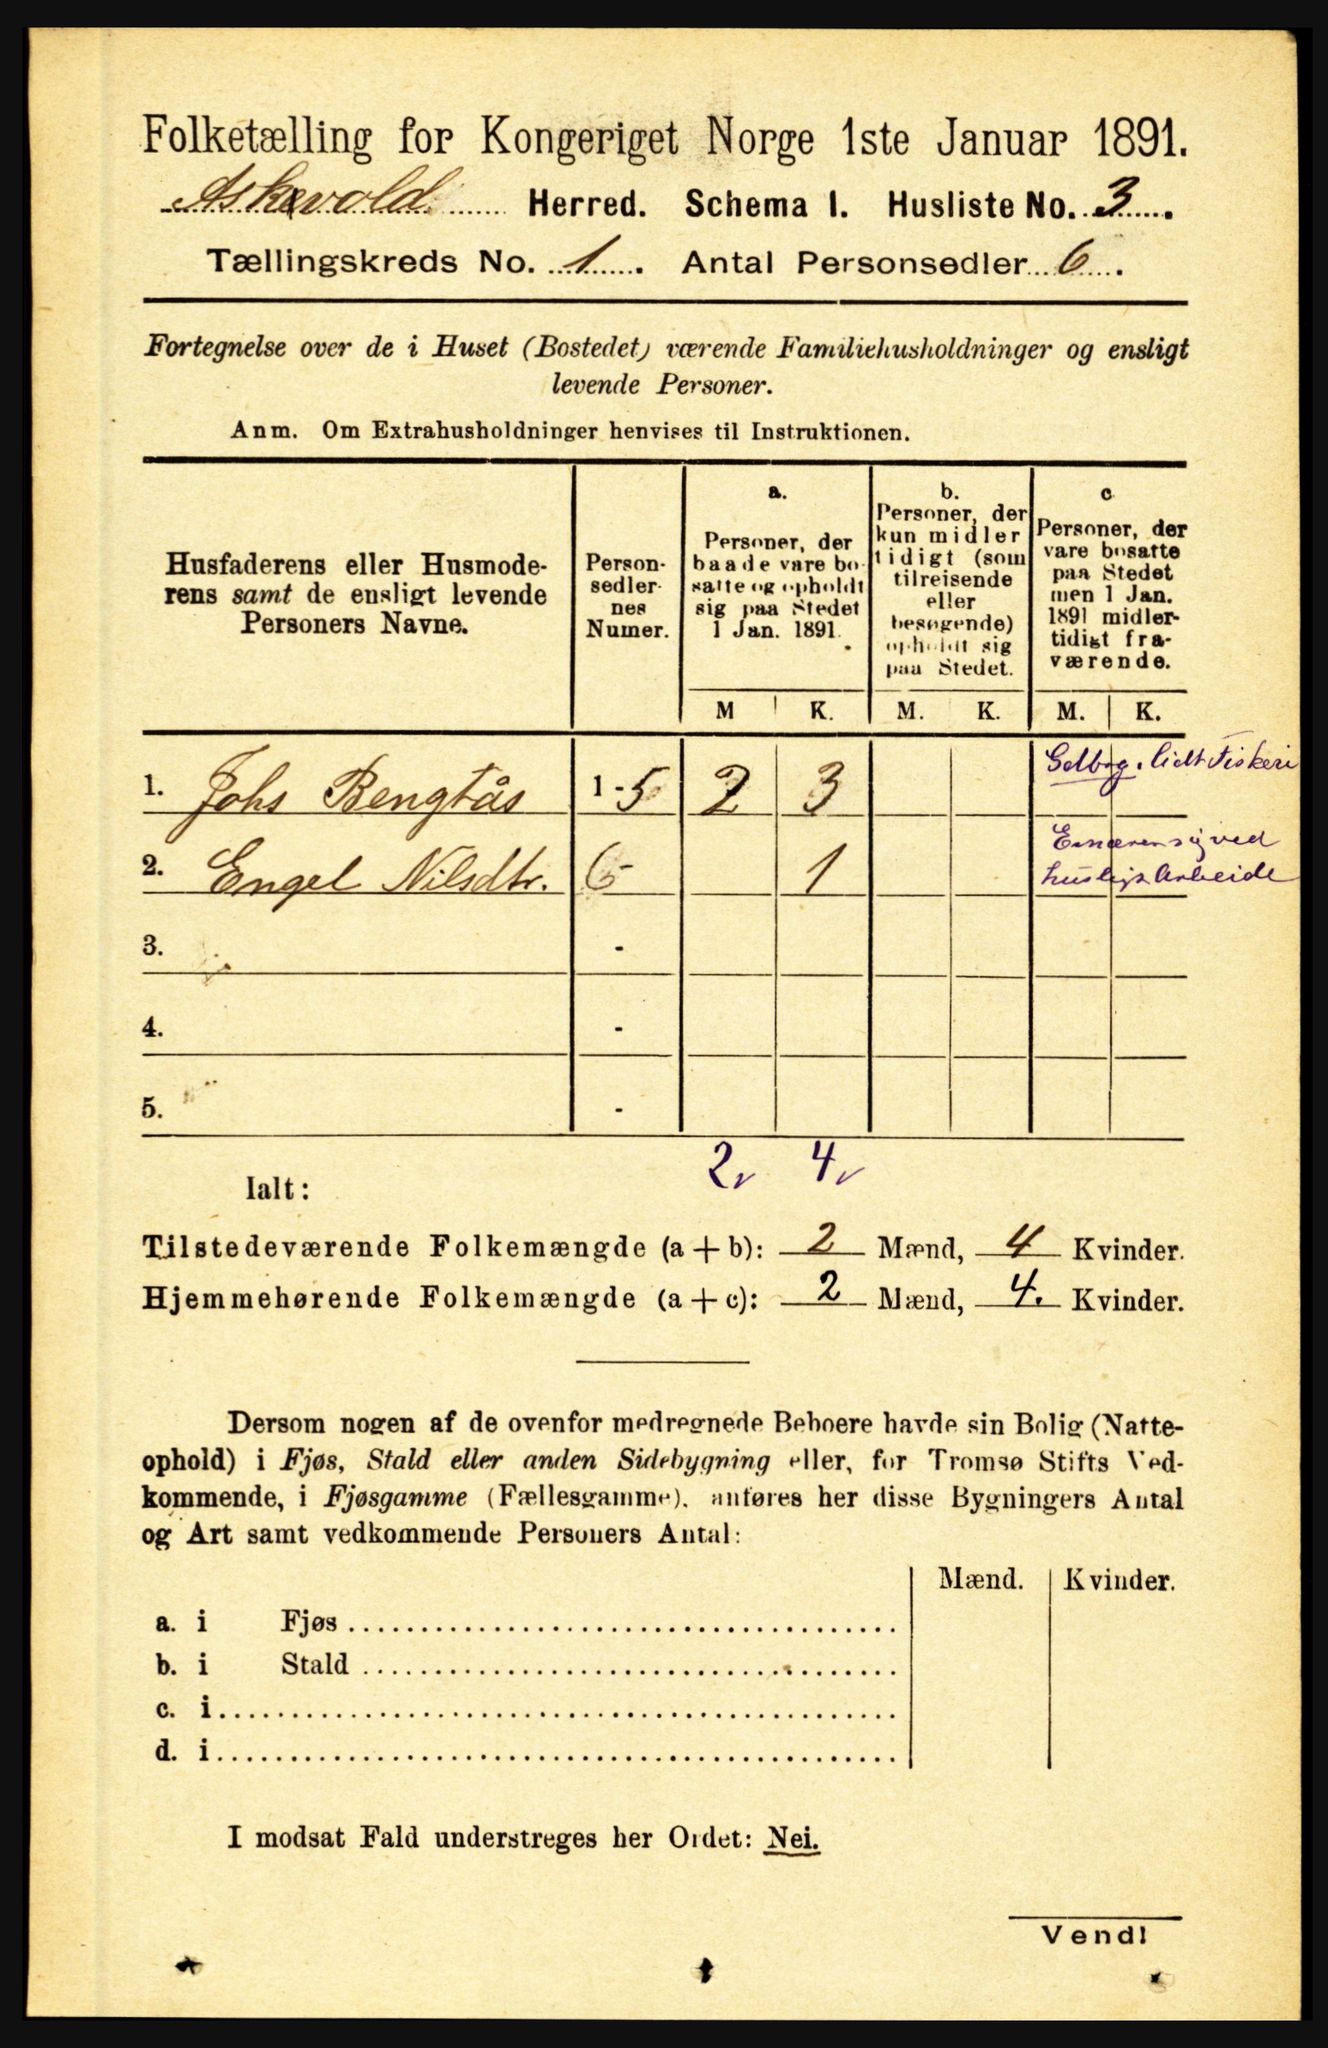 Folketælling for Kongeriget Norge 1ste Januar 1891.
Askevold Herred. Schema I. Husliste No. 3.
Tællingskreds No. 1. Antal Personsedler 6.
Fortegnelse over de i Huset (Bostedet) værende Familiehusholdninger og ensligt
levende Personer.
Anm. Om Extrahusholdninger henvises til Instruktionen.
Husfaderens eller Husmode-
rens samt de ensligt levende
Personers Navne.
Person-
sedler-
nes
Numer.
a.
Personer, der
baade vare bo-
satte og opholdt
sig paa Stedet
1 Jan. 1891.
b.
Personer, der
kun midler
tidigt (som
tilreisende
eller
besøgende)
opholdt sig
paa Stedet.
c
Personer, der
vare bosatte
paa Stedet
men 1 Jan.
1891 midler-
tidigt fra-
værende.
M K. M. K. M. K.
1. Johs Bengtås 1-5 2 3 Gdbrg. lidt Fiskeri
2. Engel Nilsdtr. 6 1 Ernærer sig ved
huslijt Arbeide
3. -
4. -
5. -
2 4
Ialt:
Tilstedeværende Folkemængde (a + b): 2 Mænd, 4 Kvinder.
Hjemmehørende Folkemængde (a + c): 2 Mænd, 4. Kvinder.
Dersom nogen af de ovenfor medregnede Beboere havde sin Bolig (Natte-
ophold) i Fjøs, Stald eller anden Sidebygning eller, for Tromsø Stifts Ved-
kommende, i Fjøsgamme (Fællesgamme), anføres her disse Bygningers Antal
og Art samt vedkommende Personers Antal:
Mænd. Kvinder.
a. i Fjøs
b. i Stald
c. i
d. i
I modsat Fald understreges her Ordet: Nei.
Vend!